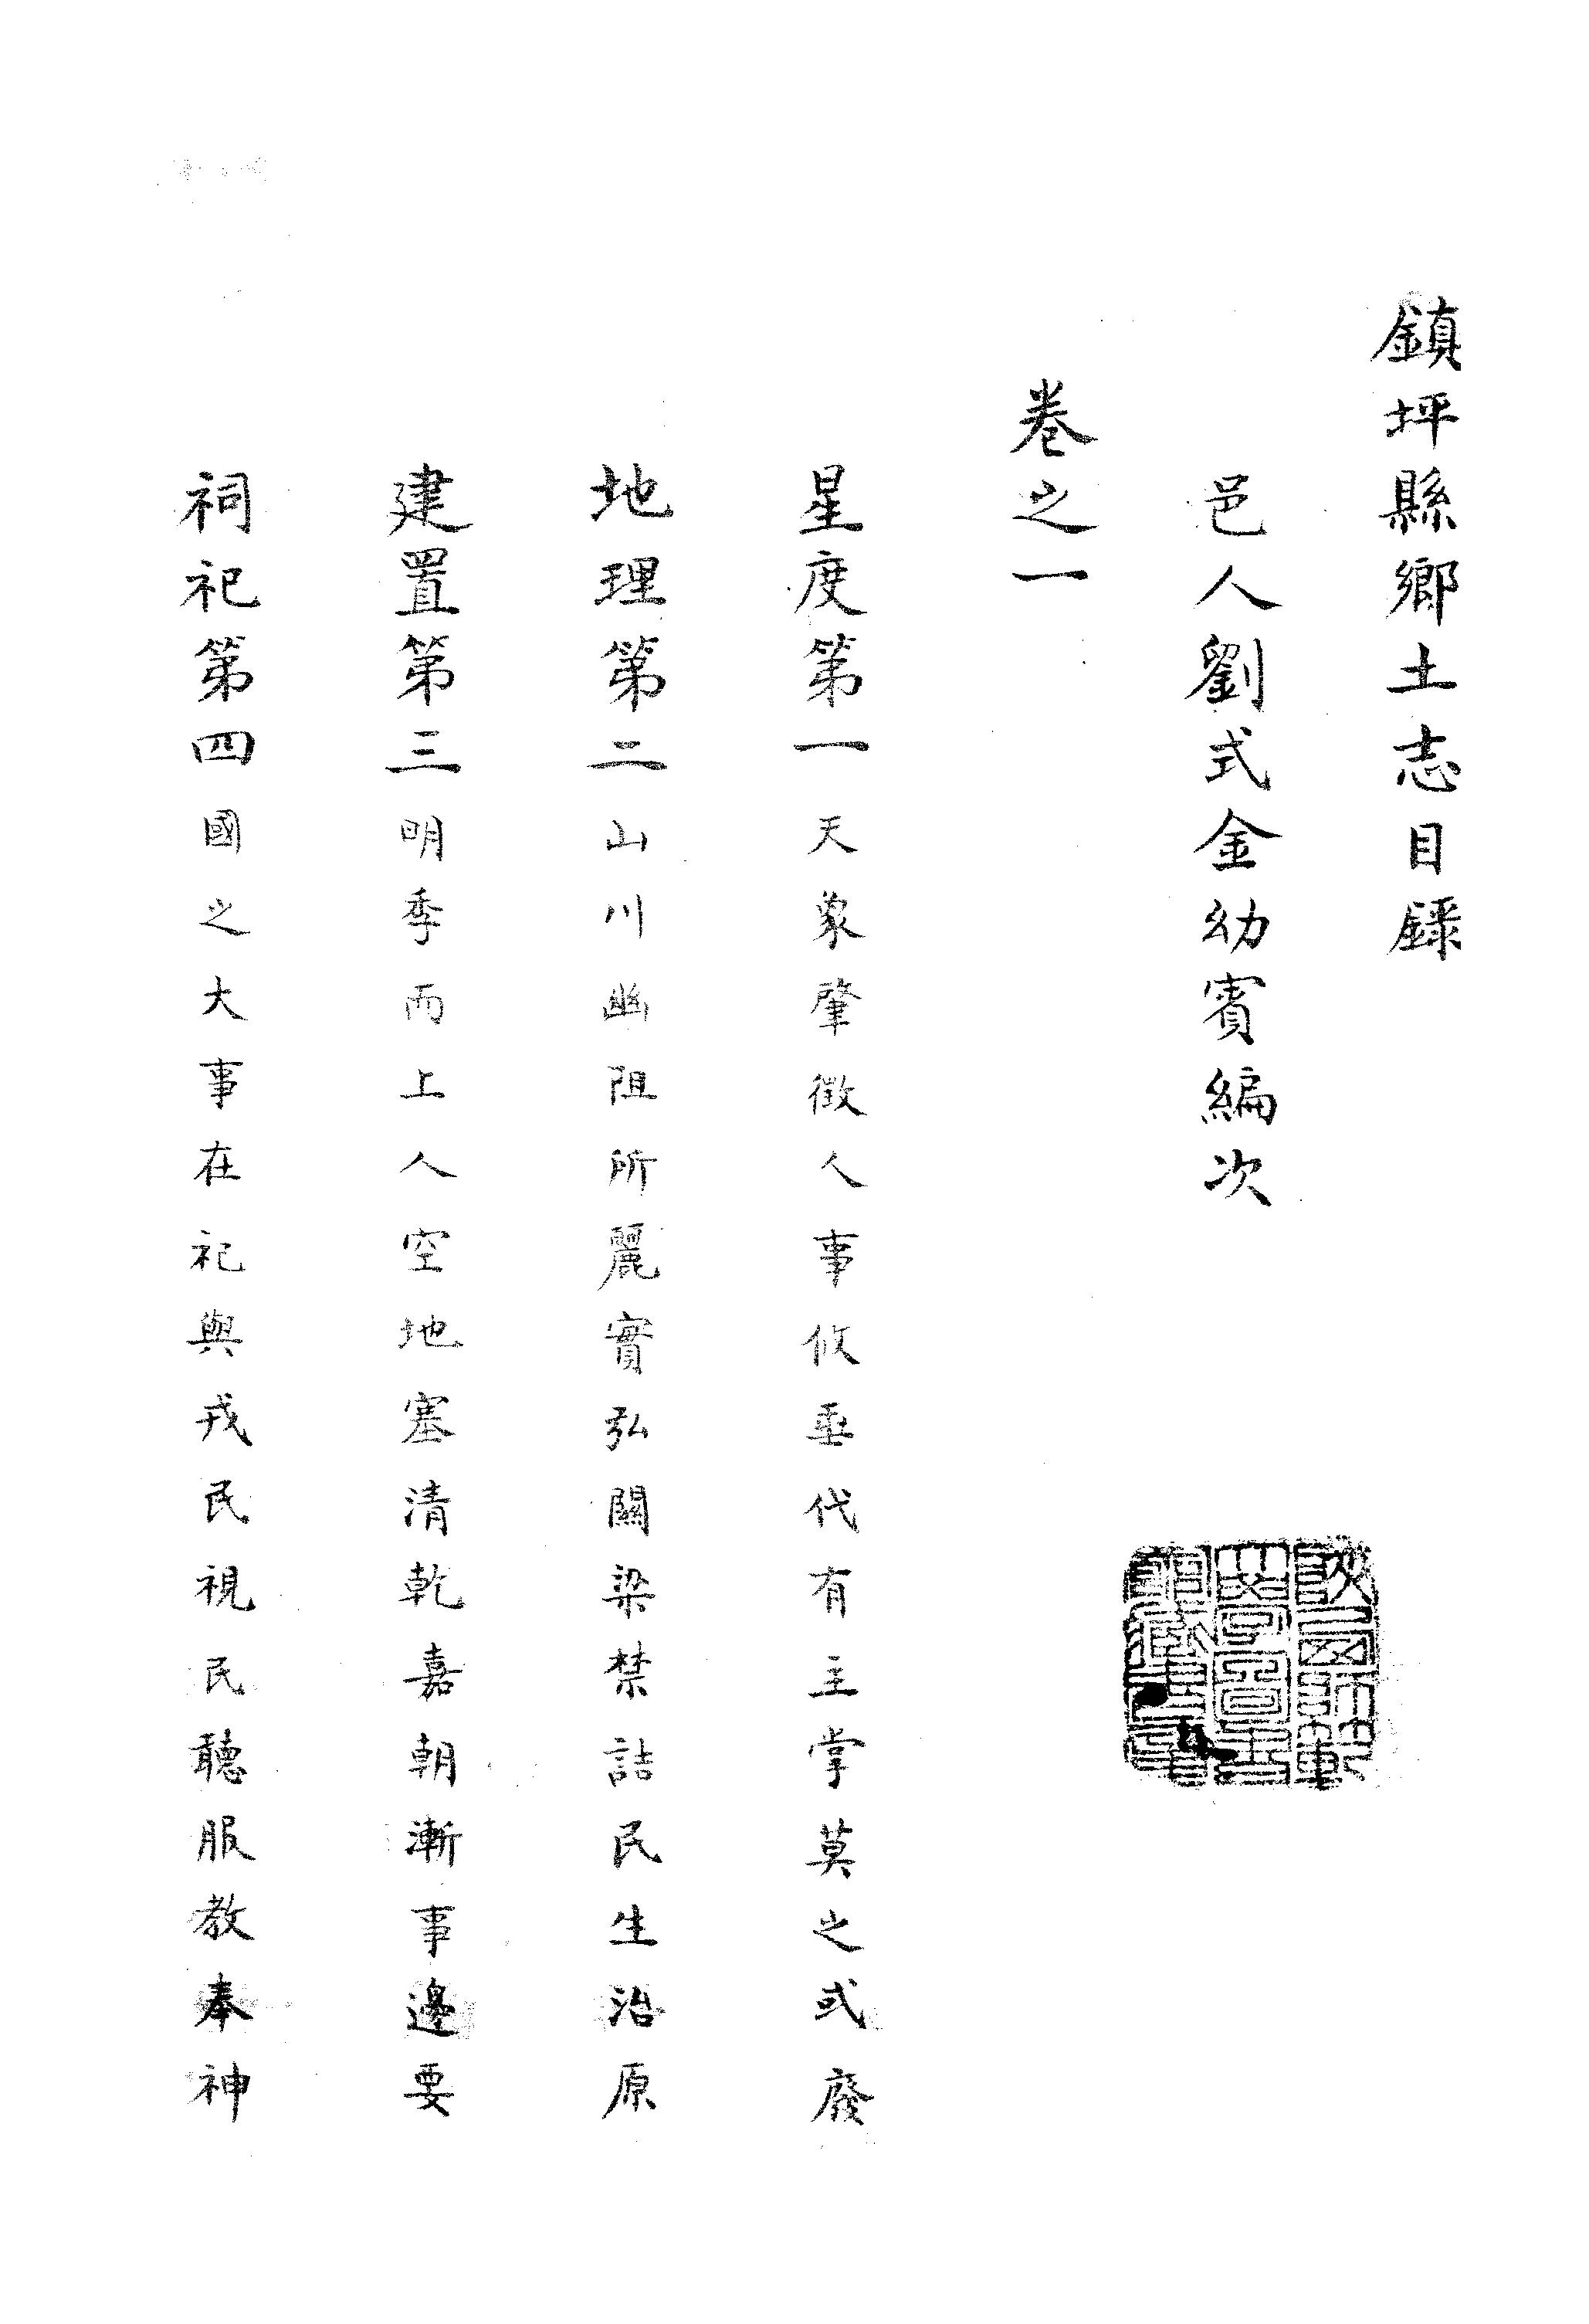 鎮坪縣鄉土志目録
邑人劉式金幼賓編次
卷之一
星度第一天象肇徵人事攸垂代有主掌莫之或廢
地理第二山川幽阻所麗實弘關梁禁詰民生治原
建置第三明季而上人空地塞清乾嘉朝漸事邊要
祠祀第四國之大事在祀與戎民視民聽服教奉神